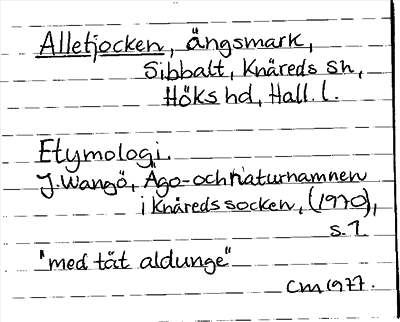 Alletjocken, ängsmark,
Sibbalt, Knäreds sn,
Höks hd, Hall. l.
Etymologi.
J. Wangö, Ägo- och naturnamnen
i Knäreds socken, (1970),
s. 7.
"med tät aldunge"
CM 1977.